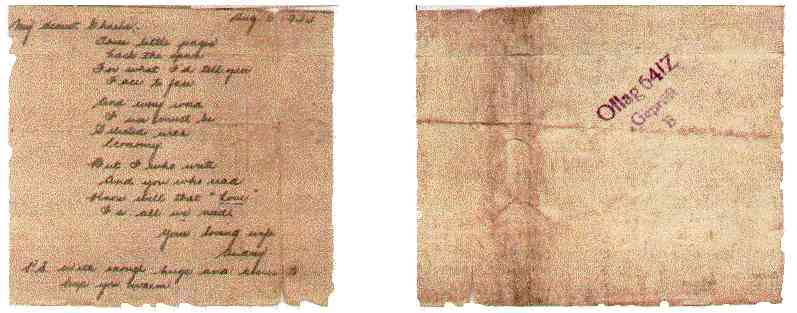 My dearest Charlie,
Aug
These little pages
Lack the space
For what I'd tell you
Face to face
And every word
I use must be
Selected with
Economy
But I who write
And you who read
Know well that "Love"
Is all we need.
Your loving wife
P.S. with enough hugs and kisses to
keep you warm
Oflag 64/Z
Geprüft
B